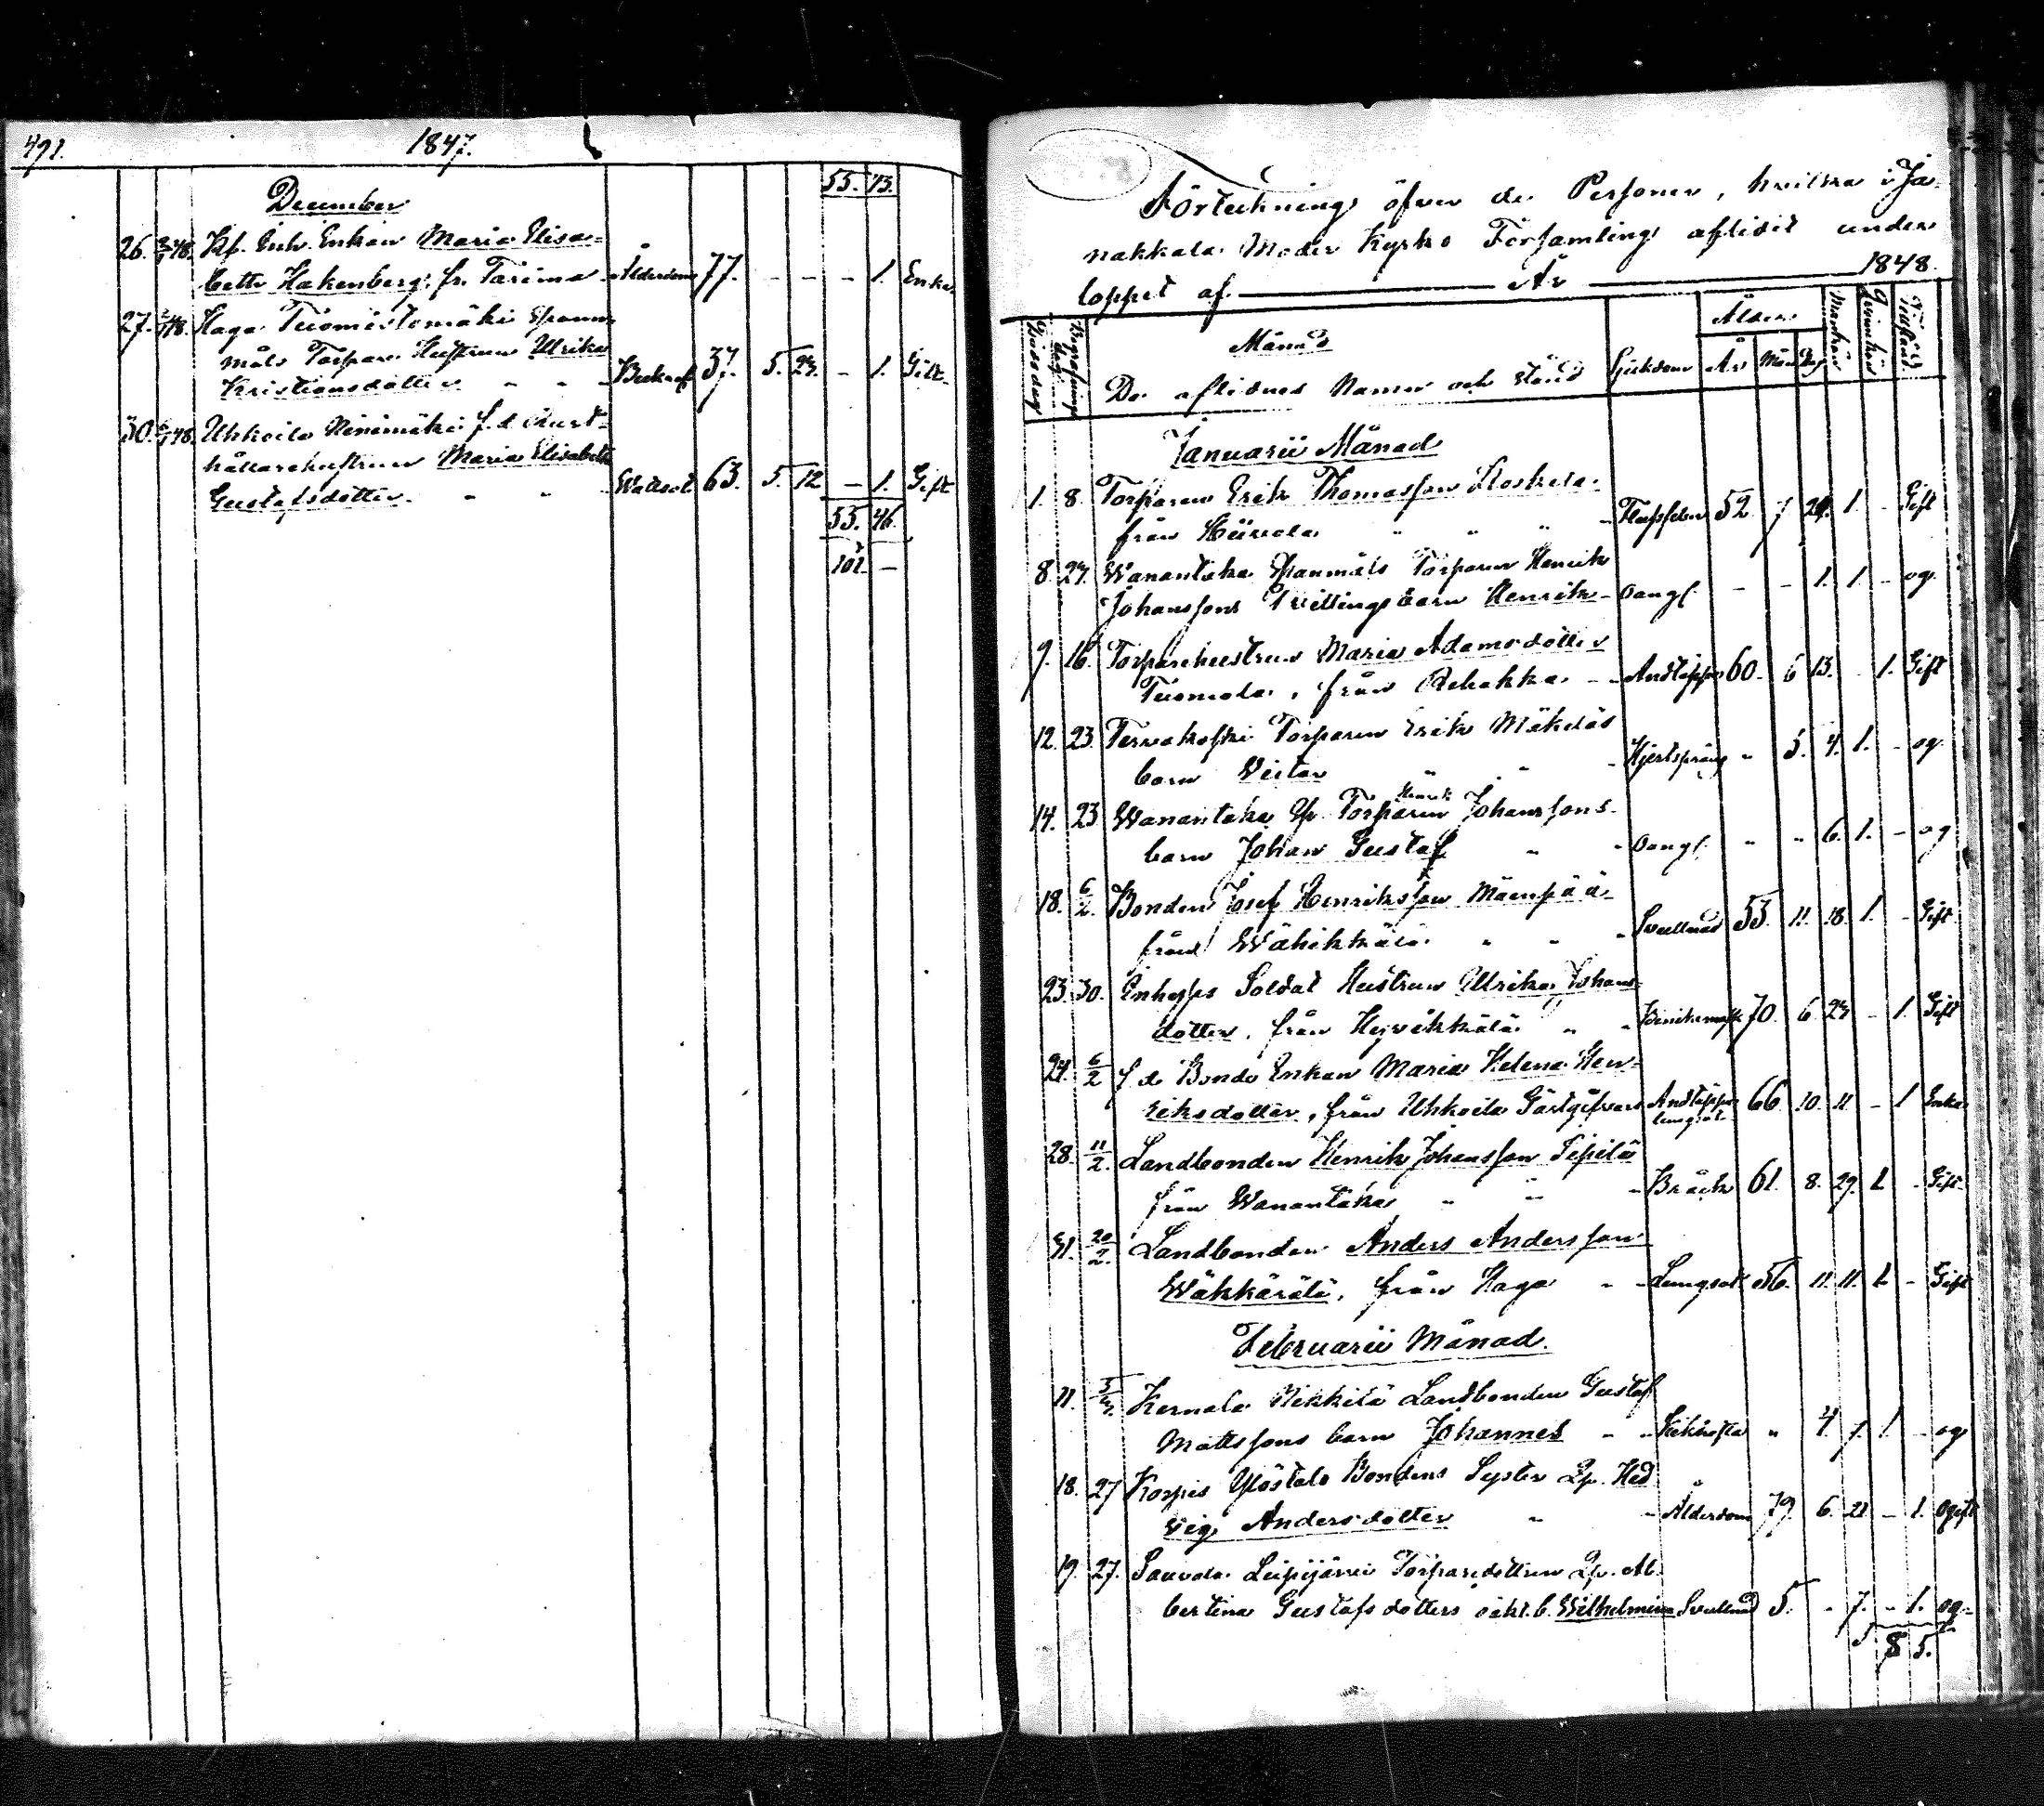 491. 1847.
55. 43.
December
26. 2/1 48. Kf. Inh. Enkan Maria Elisa-
betha Hakenberg. fr. Tarima - Ålderdom 77. - - - 1. Enka
27. 48. Haga Tuomistomäki Spann-
måls Torpare Hustrun Ulrika
Kristiansdotter - - 37. 5. 23. - 1. Gift
30. 48. Uhkoila Ninimäki f.d. Rust-
hållarehustrun Maria Elisabeth
Gustafsdotter - - Wattsot 63. 5. 12 - 1. Gift
55. 46.
101. -
Förteckning öfver de Personer, hvilka i Ja-
nakkala Moder Kyrko Församling aflidit under
loppet af År 1848.
Dödsdag Begrafnings dag Månad Sjukdom Ålder Mankön Qvinkön
De aflidnes Namn och stånd År Mån Dag
Januarii Månad
1. 8. Torparen Erik Thomasson Koskela
från Hiivola " " 52 7 29. 1. - Gift
8. 27. Wanantaka Spanmåls Torparen Henrik
Johanssons Tvillingsbarn Henrik - oangf. - - 1. 1. - og.
9. 16. Torparehustrun Maria Adamsdotter
Tuomola, från Rehakka - Andtäppa 60. 6 13. - 1. Gift
12. 23. Tervakoski Torparen Erik Mäkeläs
barn Victor " " Hjertsprång " 5. 4. 1. - og
14. 23 Wanantaka Sp. Torparen Henrik Johanssons
barn Johan Gustaf " " oangf. " " 6. 1. - og
18. 6/2. Bonden Josef Henriksson Mäenpää
från Wähikkälä " " Svullnad 53. 11. 18. 1. - Gift
23. 30. Enhyses Soldat Hustrun Ulrika Johans-
dotter, från Hyvikkälä " " 70. 6. 23 - 1. Gift
24. 6/2 f.d. Bonde Enkan Maria Helena Hen-
riksdotter, från Uhkoila Gästgifvars Andtäppa lungsot 66. 10. 11. - 1 Enka
28. 11/2. Landbonden Henrik Johansson Sipilä
från Wanantaka " " Bråck 61. 8. 29. 1 - Gift
31. 20/2. Landbonden Anders Andersson
Wäkkärälä, från Haga - Lungsot 56. 11. 11. 1 - Gift
Februarii Månad.
11. 5/3. Kernala Nikkilä Landbonden Gustaf
Mattssons barn Johannes - - Kikhosta " 4 7. 1 - og
18. 27 Korpis Ylöstalo Bondens Syster Qp. Hed-
vig Andersdotter " - Ålderdom 79. 6. 21 - 1. Ogift
19. 27. Sauvala Leipijärvi Torparedottren Qp. Al-
bertina Gustafsdotters oäkt. b. Wilhelmina Svullnad 5. - 7. - 1. og
8 5.